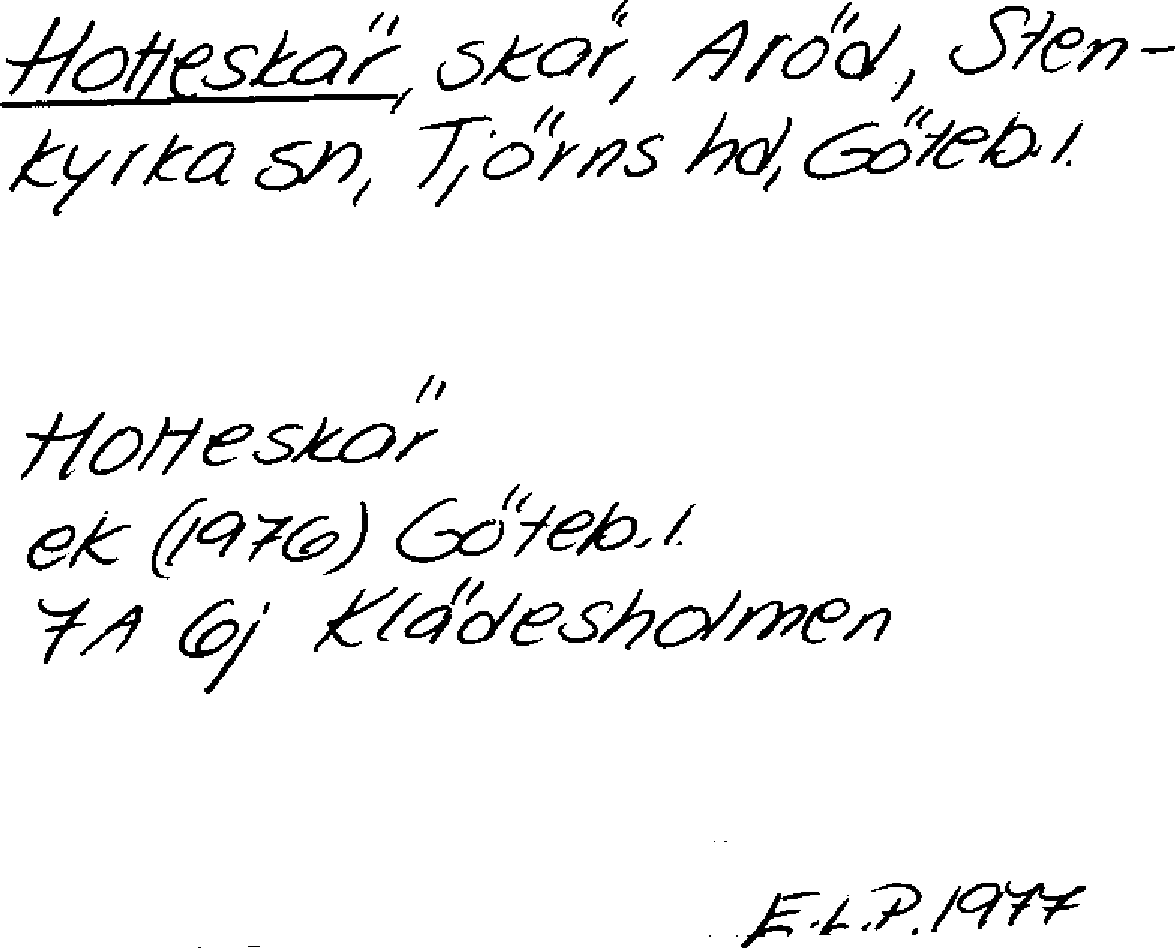 Hotteskär, skär, Aröd, Sten-
kyrka sn, Tjörns hd, Göteb.l.
Hotteskär
ek (1976) Göteb.l.
7A 6j Klädesholmen
E.L.P. 1977